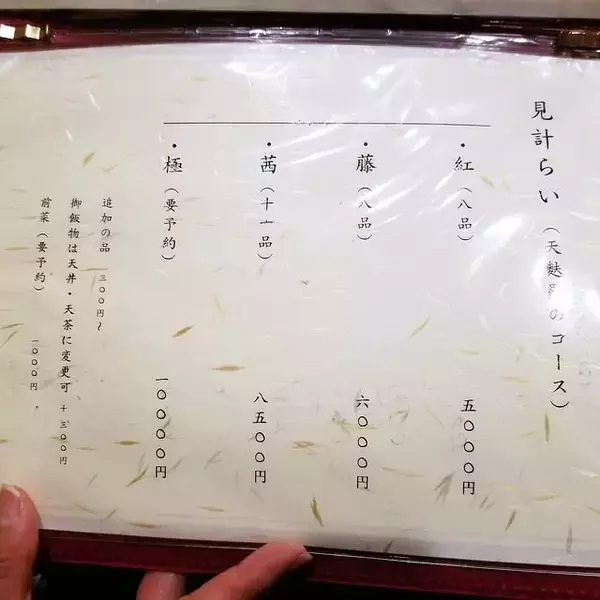 見計らい(天麩羅のコース)
・紅(八品) 五〇〇〇円
・藤(八品) 六〇〇〇円
・茜(十一品) 八五〇〇円
・極(要予約) 一〇〇〇〇円
追加の品 三〇〇円〜
御飯物は天丼・天茶に変更可 十三〇〇円
前菜(要予約) 一〇〇〇円